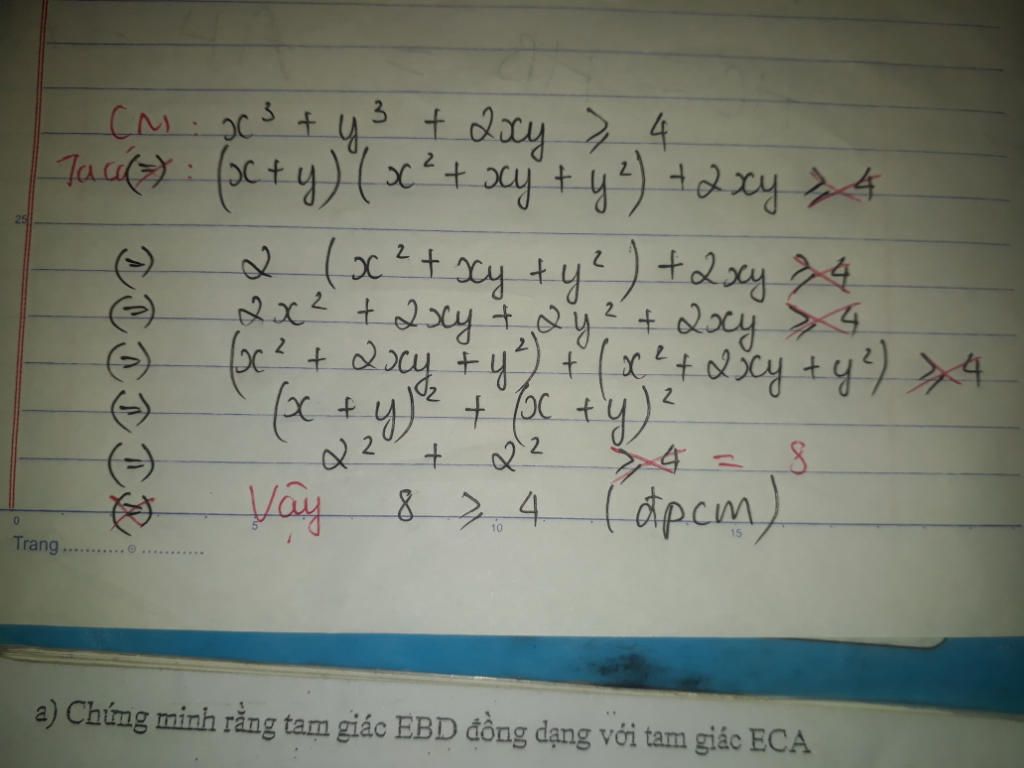 CM: x³ + y³ + 2xy ⩾ 4
Ta có (=): (x+y)(x² + xy + y²) + 2xy ⩾ 4
25
(=) 2 (x² + xy + y²) + 2xy ⩾ 4
(=) 2x² + 2xy + 2y² + 2xy ⩾ 4
(=) (x² + 2xy + y²) + (x² + 2xy + y²) ⩾ 4
(=) (x + y)² + (x + y)²
(=) 2² + 2² ⩾ 4 = 8
(=) Vậy 8 ⩾ 4 (đpcm)
0 5 10 15
Trang
a) Chứng minh rằng tam giác EBD đồng dạng với tam giác ECA